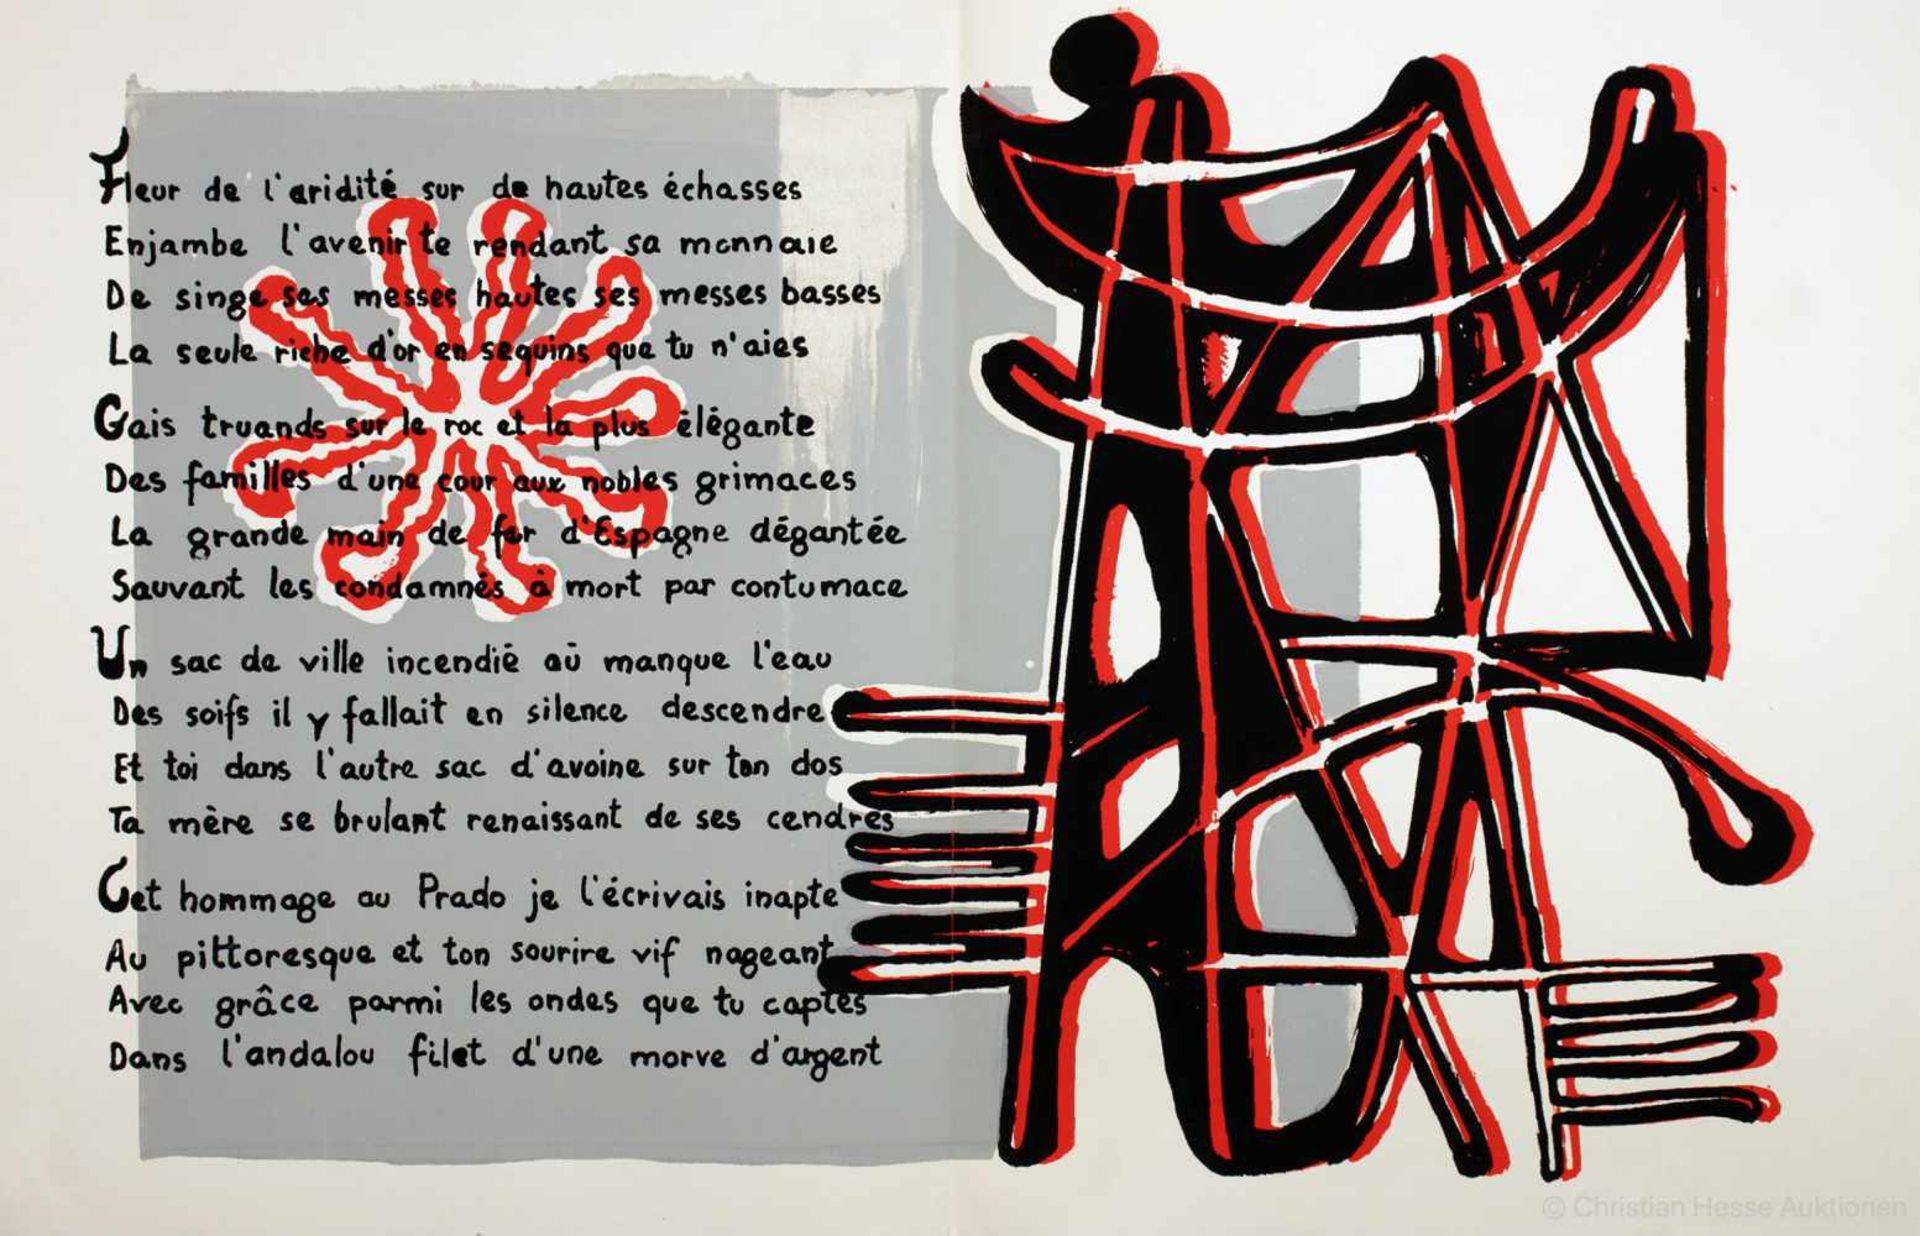 Fleur de l'aridité sur de hautes échasses
Enjambe l'avenir te rendant sa monnaie
De singe ses messes hautes ses messes basses
La seule riche d'or en sequins que tu n'aies
Gais truands sur le roc et la plus élégante
Des familles d'une cour aux nobles grimaces
La grande main de fer d'Espagne dégantée
Sauvant les condamnés à mort par contumace
Un sac de ville incendié où manque l'eau
Des soifs il y fallait en silence descendre
Et toi dans l'autre sac d'avoine sur ton dos
Ta mère se brulant renaissant de ses cendres
Cet hommage au Prado je l'écrivais inapte
Au pittoresque et ton sourire vif nageant
Avec grâce parmi les ondes que tu captes
Dans l'andalou filet d'une morve d'argent
© Christian Hesse Auktionen